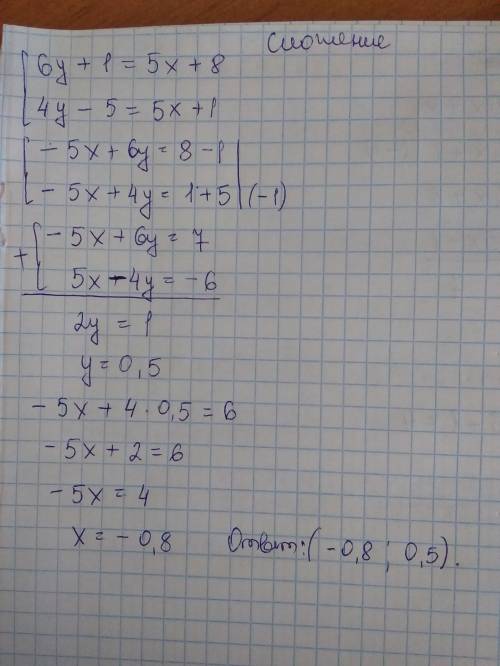 Сложение
6y + 1 = 5x + 8
4y - 5 = 5x + 1
- 5x + 6y = 8 - 1
- 5x + 4y = 1 + 5 | (-1)
+ - 5x + 6y = 7
5x - 4y = - 6
2y = 1
y = 0,5
- 5x + 4 · 0,5 = 6
- 5x + 2 = 6
- 5x = 4
x = - 0,8 Ответ: (- 0,8 ; 0,5).